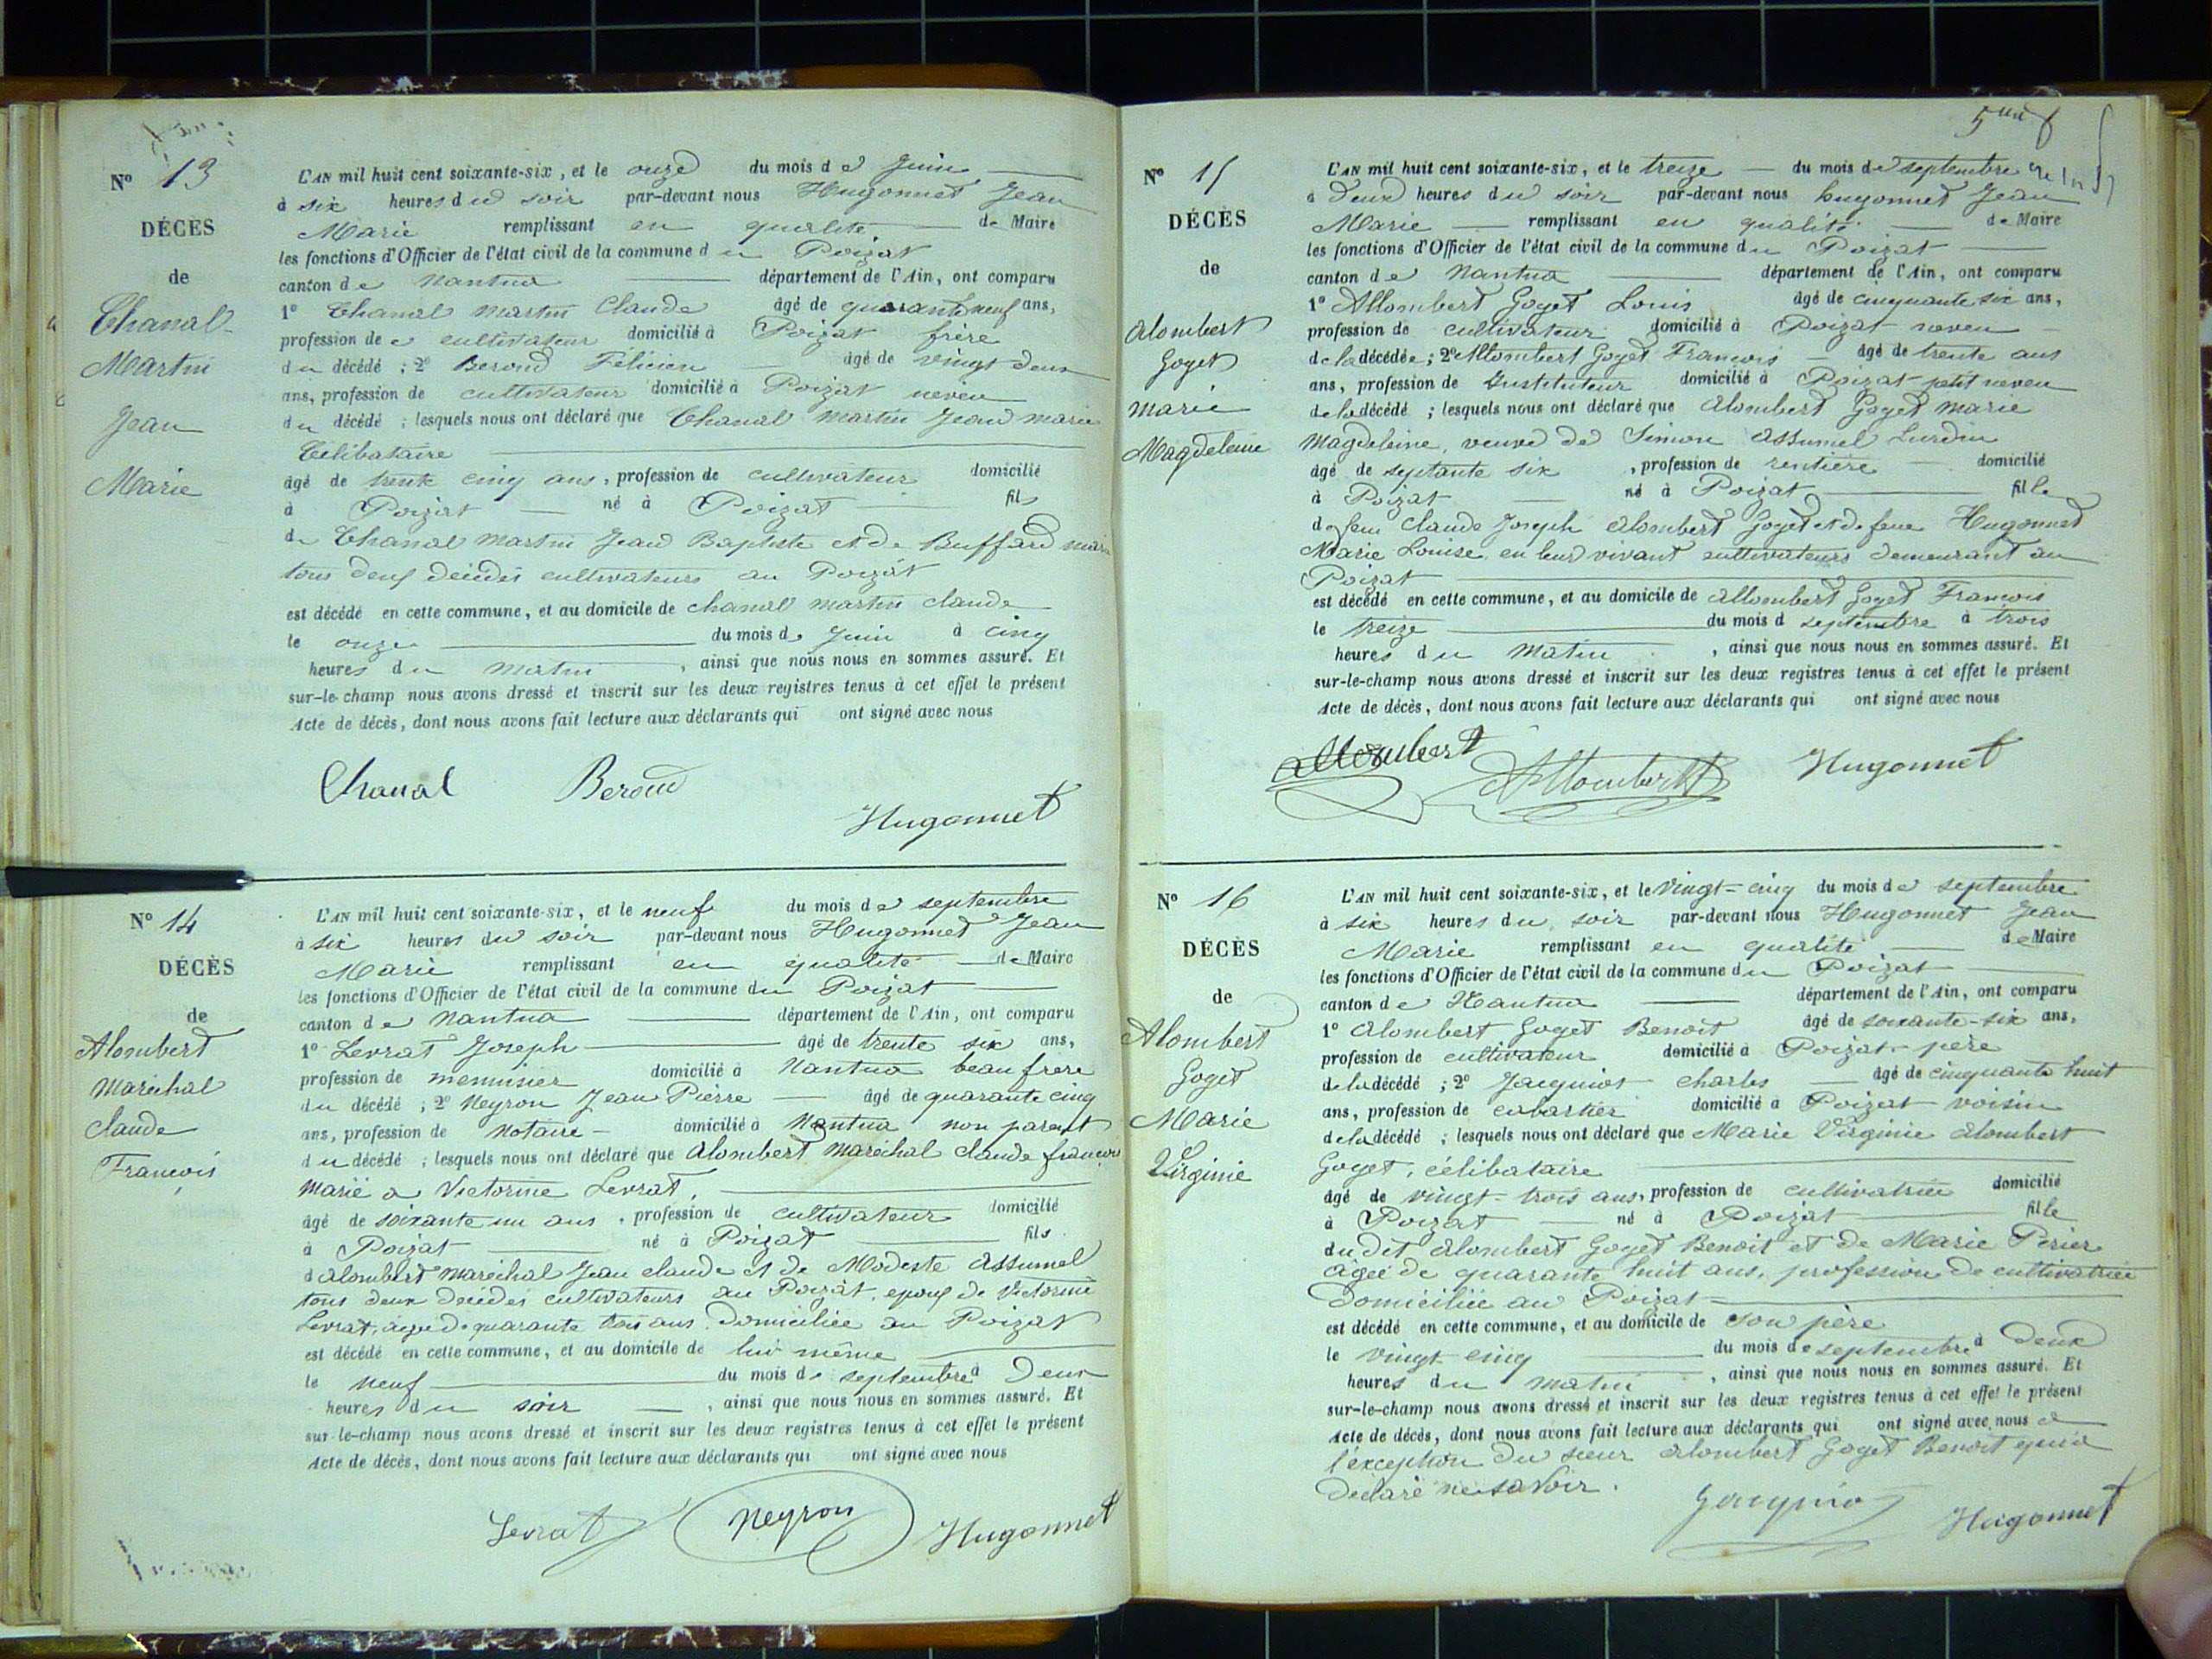 Nº 13
DÉCÈS
de
Chanal
Martin
Jean
Marie
L'AN mil huit cent soixante-six, et le onze du mois de Juin
à six heures du soir par-devant nous Hugonnet Jean
Marie remplissant en qualité de Maire
les fonctions d'Officier de l'état civil de la commune du Poizat
canton de Nantua département de l'Ain, ont comparu
1º Chanal Martin Claude âgé de quarante neuf ans,
profession de cultivateur domicilié à Poizat frère
du décédé ; 2º Beroud Félicien âgé de vingt deux
ans, profession de cultivateur domicilié à Poizat neveu
du décédé ; lesquels nous ont déclaré que Chanal Martin Jean Marie
Célibataire
âgé de trente cinq ans, profession de cultivateur domicilié
à Poizat né à Poizat fils
de Chanal Martin Jean Baptiste et de Buffard Marie
tous deux décédés cultivateurs au Poizat
est décédé en cette commune, et au domicile de Chanal Martin Claude
le onze du mois de Juin à cinq
heures du matin, ainsi que nous nous en sommes assuré. Et
sur-le-champ nous avons dressé et inscrit sur les deux registres tenus à cet effet le présent
Acte de décès, dont nous avons fait lecture aux déclarants qui ont signé avec nous
Chanal Beroud
Hugonnet
Nº 14
DÉCÈS
de
Alombert
Maréchal
Claude
François
L'AN mil huit cent soixante-six, et le neuf du mois de septembre
à six heures du soir par-devant nous Hugonnet Jean
Marie remplissant en qualité de Maire
les fonctions d'Officier de l'état civil de la commune du Poizat
canton de Nantua département de l'Ain, ont comparu
1º Levrat Joseph âgé de trente six ans,
profession de menuisier domicilié à Nantua beau frère
du décédé ; 2º Neyron Jean Pierre âgé de quarante cinq
ans, profession de Notaire domicilié à Nantua non parent
du décédé ; lesquels nous ont déclaré que Alombert Maréchal Claude françois
marié à Victorine Levrat,
âgé de soixante un ans, profession de cultivateur domicilié
à Poizat né à Poizat fils
d'alombert maréchal Jean claude et de Modeste Assumel
tous deux décédés cultivateurs au Poizat, epoux de Victorine
Levrat, âgée de quarante trois ans. Domiciliée au Poizat
est décédé en cette commune, et au domicile de lui même
le neuf du mois de septembre à Deux
heures du soir, ainsi que nous nous en sommes assuré. Et
sur-le-champ nous avons dressé et inscrit sur les deux registres tenus à cet effet le présent
Acte de décès, dont nous avons fait lecture aux déclarants qui ont signé avec nous
Levrat Neyron Hugonnet
Nº 15
DÉCÈS
de
Alombert
Goget
Marie
Magdeleine
L'AN mil huit cent soixante-six, et le treize du mois de septembre
à deux heures du soir par-devant nous hugonnet Jean
Marie remplissant en qualité de Maire
les fonctions d'Officier de l'état civil de la commune du Poizat
canton de Nantua département de l'Ain, ont comparu
1º Allombert Goget Louis âgé de cinquante six ans,
profession de cultivateur domicilié à Poizat neveu
de la décédée ; 2º Allombert Goget François âgé de trente ans
ans, profession de Instituteur domicilié à Poizat petit neveu
de la décédé ; lesquels nous ont déclaré que Alombert Goget Marie
Magdeleine, veuve de Simon Assumel Lurdin
âgé de septante six, profession de rentière domicilié
à Poizat né à Poizat fille
de feu Claude Joseph Alombert Goget et de feue Hugonnet
Marie Louise en leur vivant cultivateurs demeurant au
Poizat
est décédé en cette commune, et au domicile de Allombert Goget François
le treize du mois d septembre à trois
heures du matin, ainsi que nous nous en sommes assuré. Et
sur-le-champ nous avons dressé et inscrit sur les deux registres tenus à cet effet le présent
Acte de décès, dont nous avons fait lecture aux déclarants qui ont signé avec nous
Allombert Allombert Hugonnet
Nº 16
DÉCÈS
de
Alombert
Goget
Marie
Virginie
L'AN mil huit cent soixante-six, et le Vingt-cinq du mois de septembre
à six heures du soir par-devant nous Hugonnet Jean
Marie remplissant en qualité de Maire
les fonctions d'Officier de l'état civil de la commune du Poizat
canton de Nantua département de l'Ain, ont comparu
1º Alombert Goget Benoit âgé de soixante-six ans,
profession de cultivateur domicilié à Poizat père
de la décédé ; 2º Jacquiot Charles âgé de cinquante huit
ans, profession de cabartier domicilié à Poizat voisin
de la décédé ; lesquels nous ont déclaré que Marie Virginie Alombert
Goget, célibataire
âgé de vingt-trois ans, profession de cultivatrice domicilié
à Poizat né à Poizat fille
du dit Alombert Goget Benoit et de Marie Perier
âgée de quarante huit ans, profession de cultivatrice
domiciliée au Poizat
est décédé en cette commune, et au domicile de son père
le vingt cinq du mois de septembre à Deux
heures du matin, ainsi que nous nous en sommes assuré. Et
sur-le-champ nous avons dressé et inscrit sur les deux registres tenus à cet effet le présent
Acte de décès, dont nous avons fait lecture aux déclarants qui ont signé avec nous à
l'exception du sieur Alombert Goget Benoit qui a
déclaré ne savoir.
Jacquiot Hugonnet